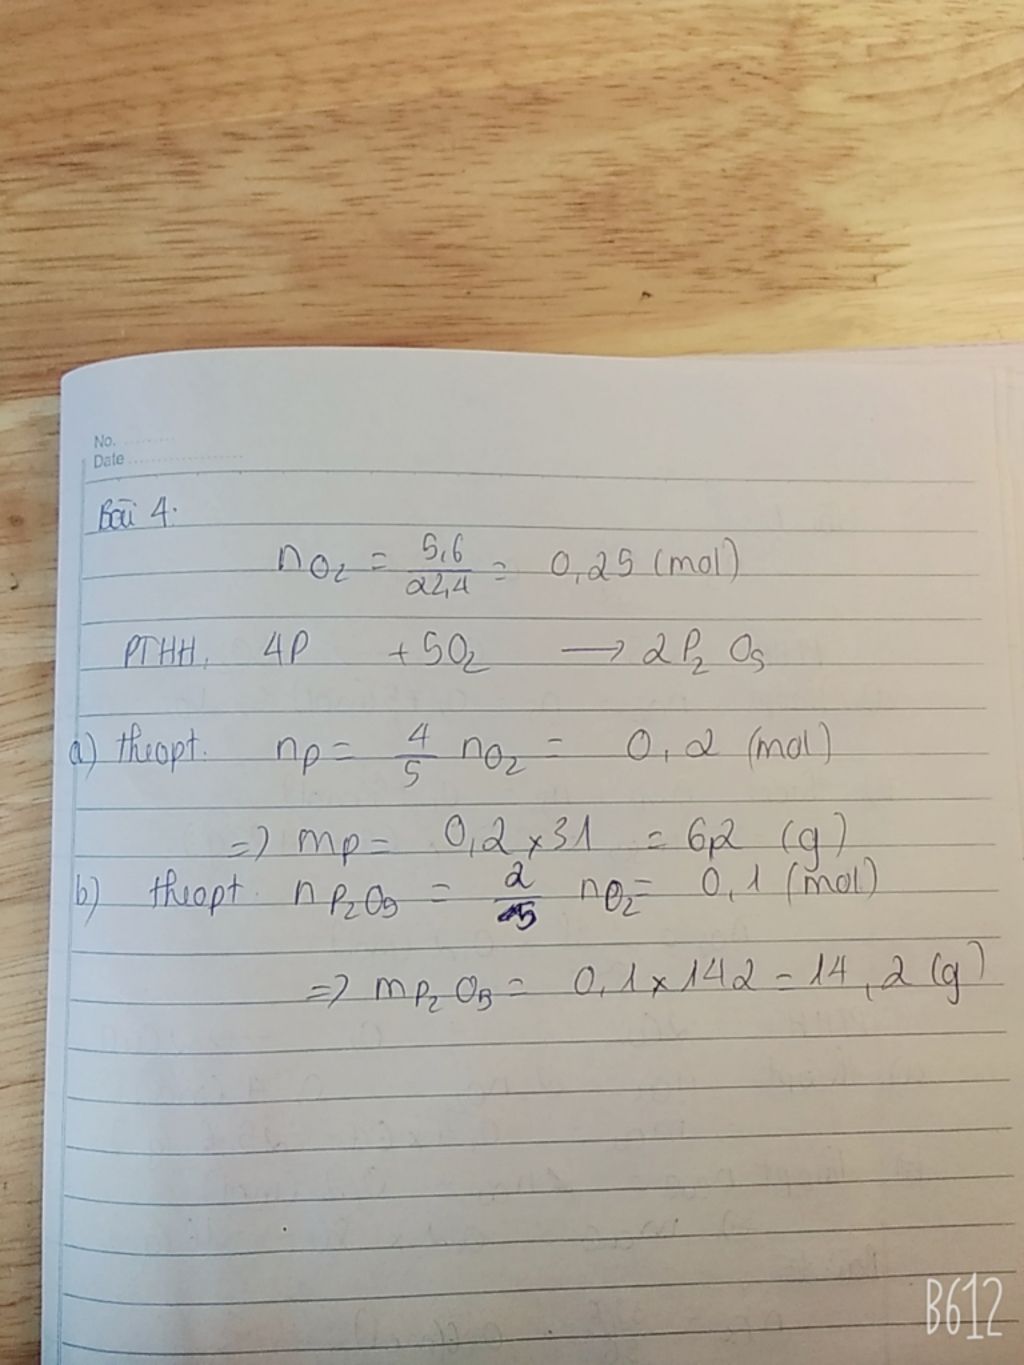 No. ..........
Date ....................
Bài 4.
nO₂ = 5,6/22,4 = 0,25 (mol)
PTHH, 4P + 5O₂ → 2P₂O₅
a) theo pt. nP = 4/5 nO₂ = 0,2 (mol)
=> mP = 0,2 × 31 = 6,2 (g)
b) theo pt. nP₂O₅ = 2/5 nO₂ = 0,1 (mol)
=> mP₂O₅ = 0,1 × 142 = 14,2 (g)
B612